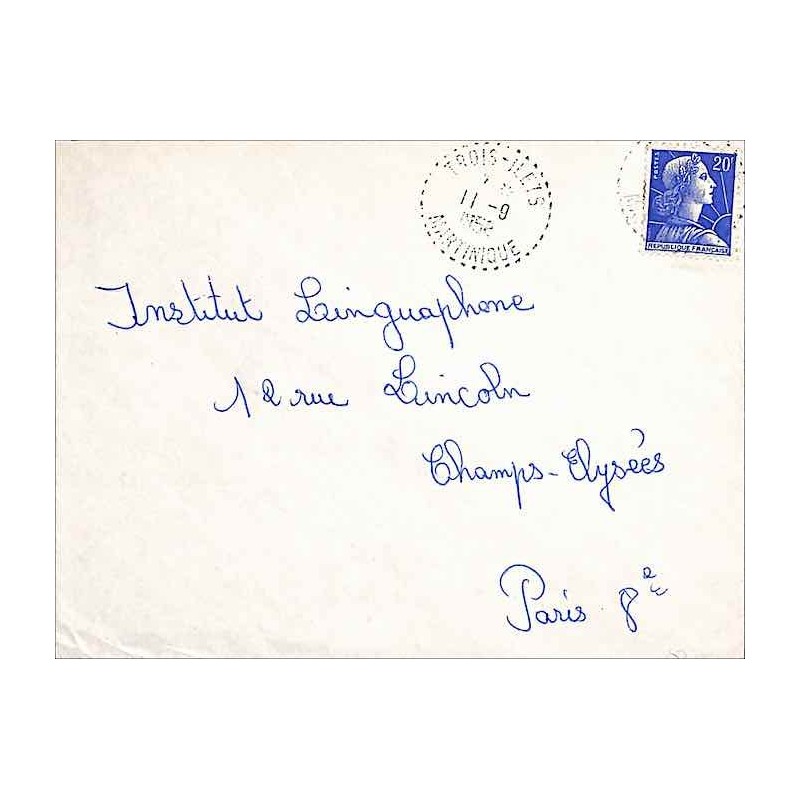 TROIS-ILETS
11 -9
1958
MARTINIQUE
POSTES
20F
REPUBLIQUE FRANÇAISE
Institut Linguaphone
12 rue Lincoln
Champs-Elysées
Paris 8e